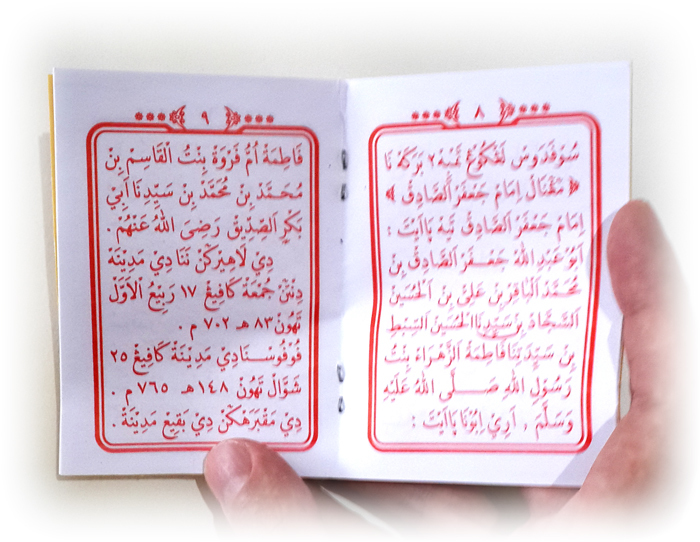 ٨
بَرَكَةْ
﴿ اِمَامْ جَعْفَرْ اَلصَّادِقْ ﴾
اِمَامْ جَعْفَرْ اَلصَّادِقْ :
اَبُوْ عَبْدِ اللهْ جَعْفَرْ اَلصَّادِقْ بِنْ
مُحَمَّدْ اَلْبَاقِرْ بِنْ عَلِيْ بِنْ اَلْحُسَيْنْ
اَلسَّجَّادْ بِنْ سَيِّدِنَا اَلْحُسَيْنْ اَلسِّبْطِ
بِنْ سَيِّدَتِنَا فَاطِمَةُ الزَّهْرَاءْ بِنْتُ
رَسُوْلِ اللهِ صَلَّى اللهُ عَلَيْهِ
وَسَلَّمَ , اَرِيْ اِبُوْنَا :
٩
فَاطِمَةْ اُمُّ فَرْوَةْ بِنْتُ الْقَاسِمْ بِنْ
مُحَمَّدْ بِنْ مُحَمَّدْ بِنْ سَيِّدِنَا اَبِيْ
بَكْرِ الصِّدِّيْقْ رَضِيَ اللهُ عَنْهُمْ .
دِيْ لَاهِيْرَكَنْ دِيْ مَدِيْنَةْ
جُمْعَةْ كَافِيڠْ ١٧ رَبِيْعُ الْاَوَّلْ
تَهُوْنْ ٨٣ هـ ٧٠٢ م .
مَدِيْنَةْ كَافِيڠْ ٢٥
شَوَّالْ تَهُوْنْ ١٤٨ هـ ٧٦٥ م .
دِيْ مَقْبَرَهْكَنْ دِيْ بَقِيْعْ مَدِيْنَةْ .